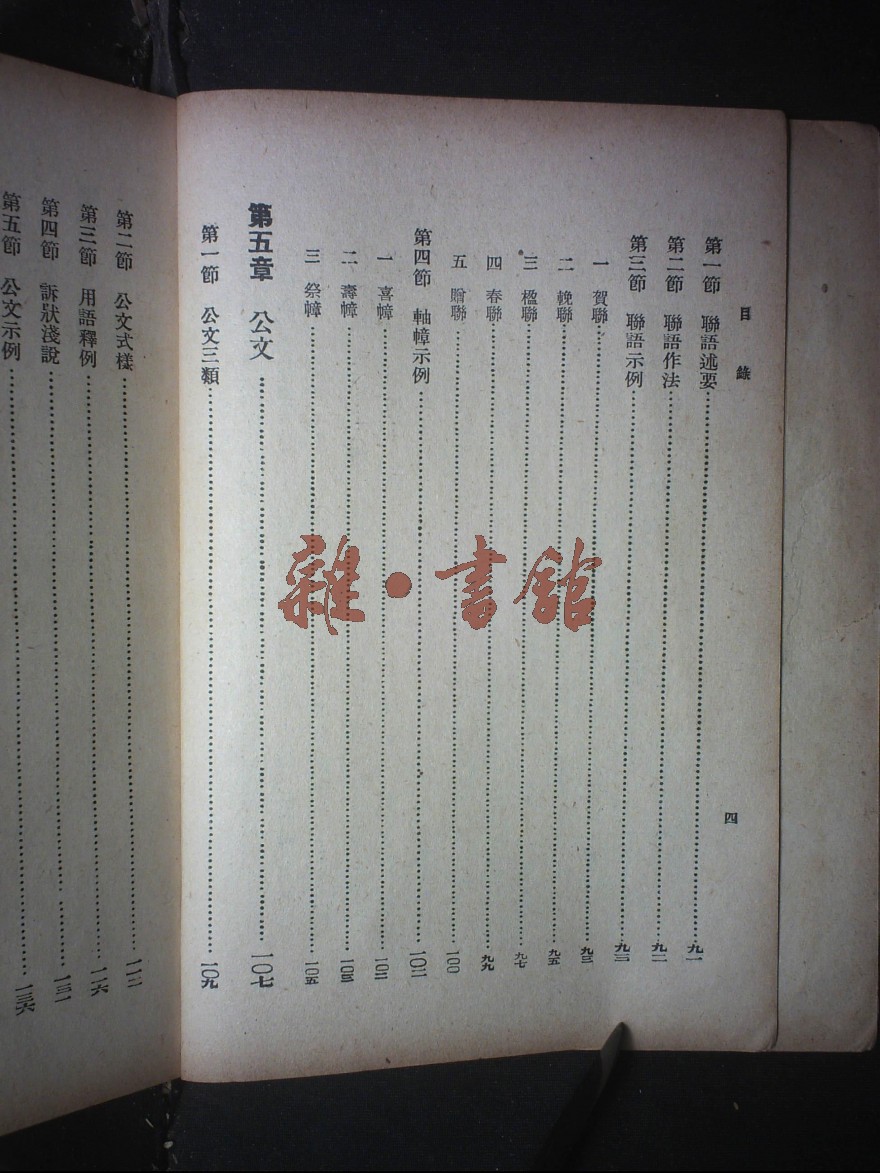 目錄
四
第一節 聯語述要……九一
第二節 聯語作法……九二
第三節 聯語示例……九三
一 賀聯……九三
二 輓聯……九五
三 楹聯……九七
四 春聯……九九
五 贈聯……一〇〇
第四節 軸幛示例……一〇二
一 喜幛……一〇二
二 壽幛……一〇三
三 祭幛……一〇五
第五章 公文……一〇七
第一節 公文三類……一〇九
第二節 公文式樣……一一二
第三節 用語釋例……一一六
第四節 訴狀淺說……一三一
第五節 公文示例……一三六
雜·書館